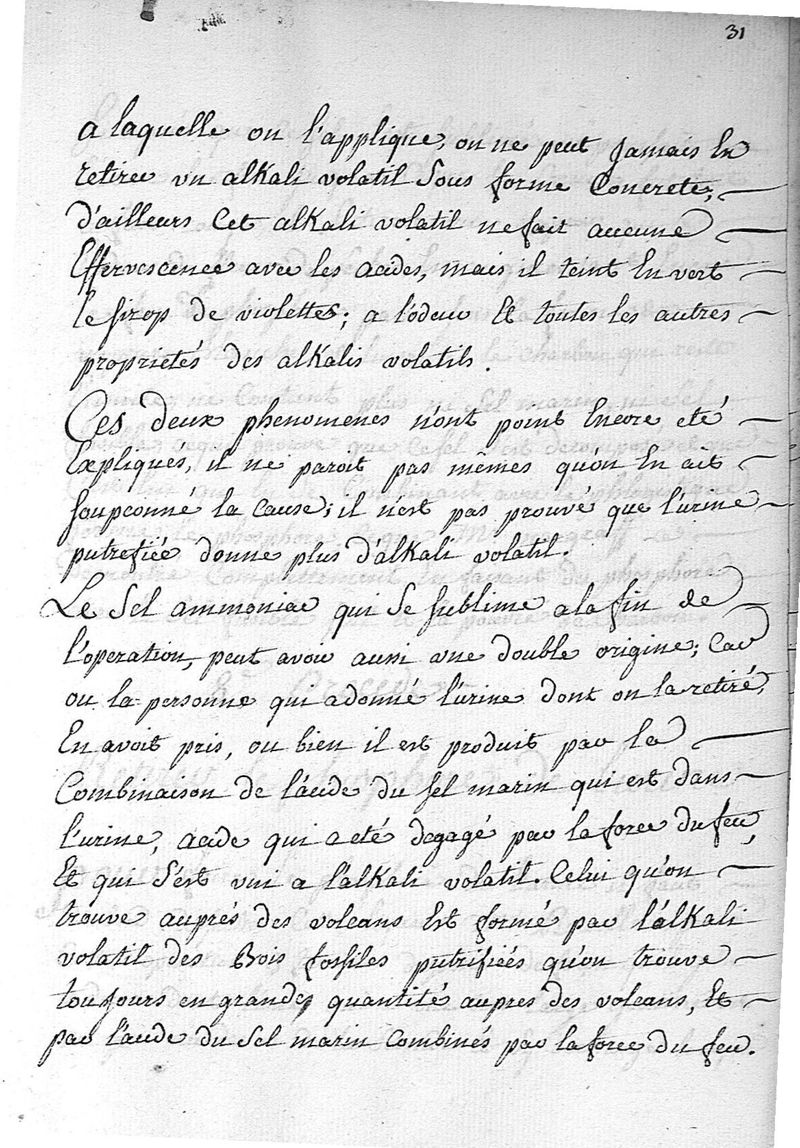 31
a laquelle on l'applique, on ne peut Jamais En
retirer un alkali volatil Sous forme Concrete,
d'ailleurs Cet alkali volatil ne fait aucune
Effervescence avec les acides, mais il teint En vert
le sirop de violettes; a l'odeur Et toutes les autres
proprietés des alkalis volatils.
Ces deux phenomenes n'ont point Encore eté
Expliqués, il ne paroit pas mêmes qu'on En ait
soupconné la Cause; il n'est pas prouvé que l'urine
putrefiée donne plus d'alkali volatil.
Le Sel ammoniac qui Se sublime a la fin de
l'operation, peut avoir aussi une double origine; Car
ou la personne qui a donné l'urine dont on la retiré,
En avoit pris, ou bien il est produit par la
Combinaison de l'acide du sel marin qui est dans
l'urine, acide qui a eté degagé par la force du feu,
Et qui S'est uni a l'alkali volatil. Celui qu'on
trouve auprés des volcans Est formé par l'alkali
volatil des Bois fossiles putrifiées qu'on trouve
toujours en grande quantité aupres des volcans, Et
par l'acide du Sel marin Combinés par la force du feu.